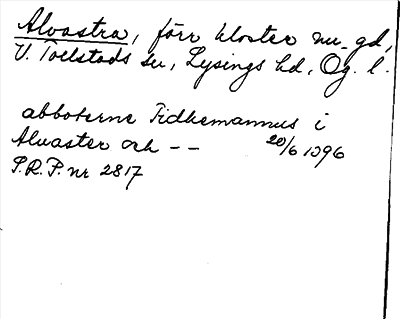 Alvastra, förr kloster nu gd,
V. Tollstads sn, Lysings hd, Ög. l.
abboterne Tidhemannus i
Alvaster och -- 20/6 1396
P.R.P. nr 2817